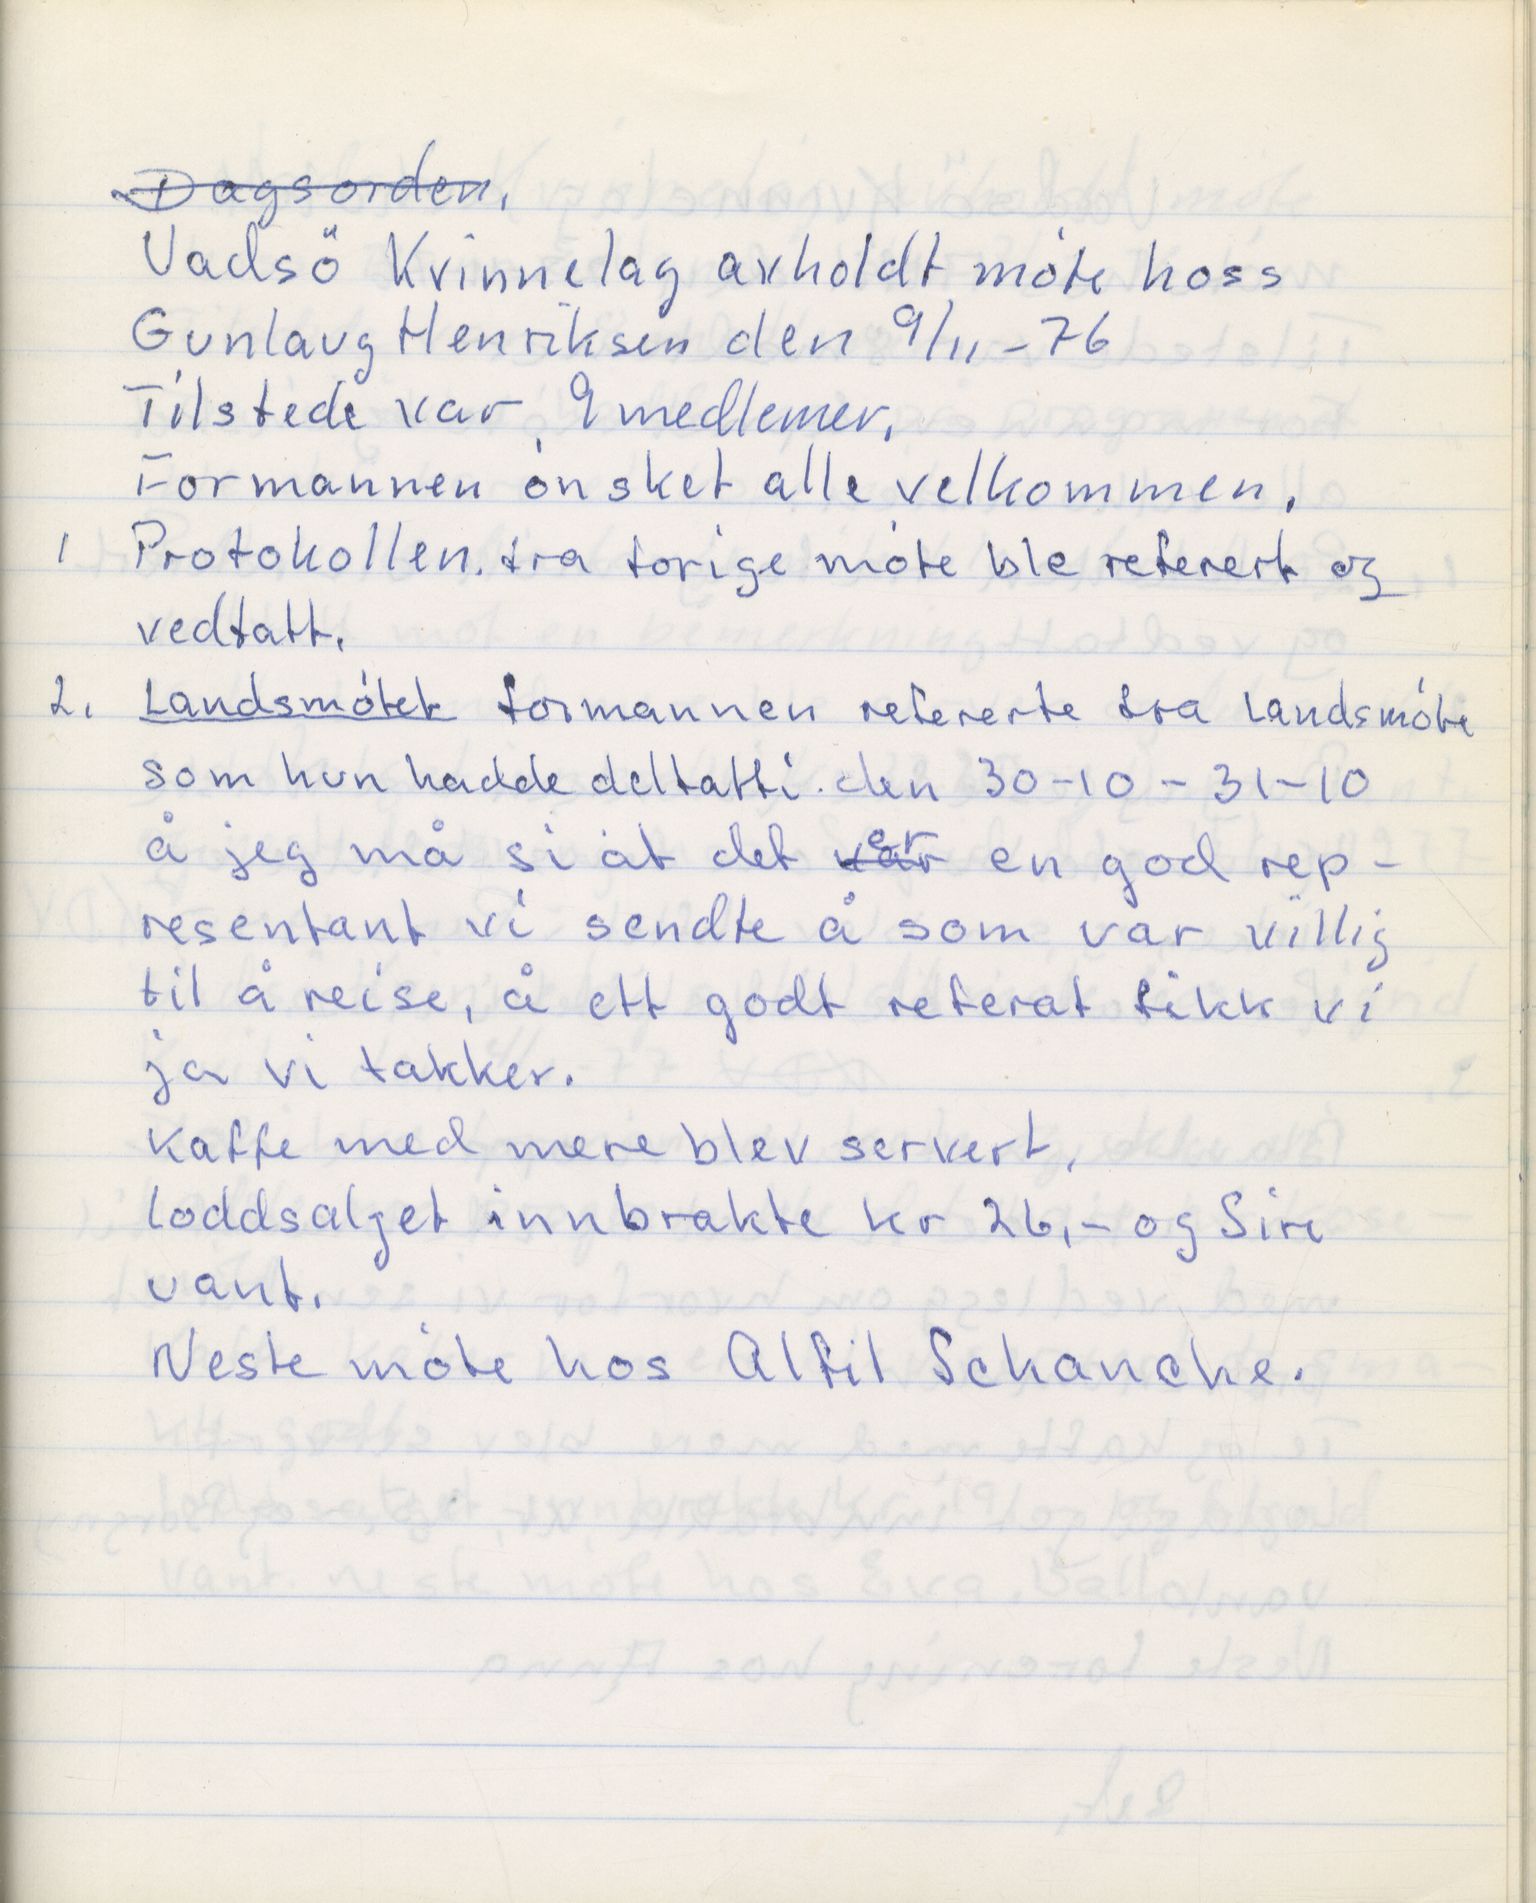 Dagsorden.
Vadsö Kvinnelag avholdt møte hoss
Gunlaug Henriksen den 9/11-76
Tilstede var 9 medlemer.
Formannen ønsket alle velkommen.
1 Protokollen. fra forige møte ble referert og
vedtatt.
2. Landsmøtet formannen refererte fra Landsmøte
som hun hadde deltatt i. den 30-10 - 31-10
å jeg må si at det var er en god rep-
resentant vi sendte å som var villig
til å reise, å ett godt referat fikk vi
ja vi takker.
Kaffe med mere blev servert.
loddsalget innbrakte kr 26,- og Siri
vant.
Neste møte hos Alfil Schanche.